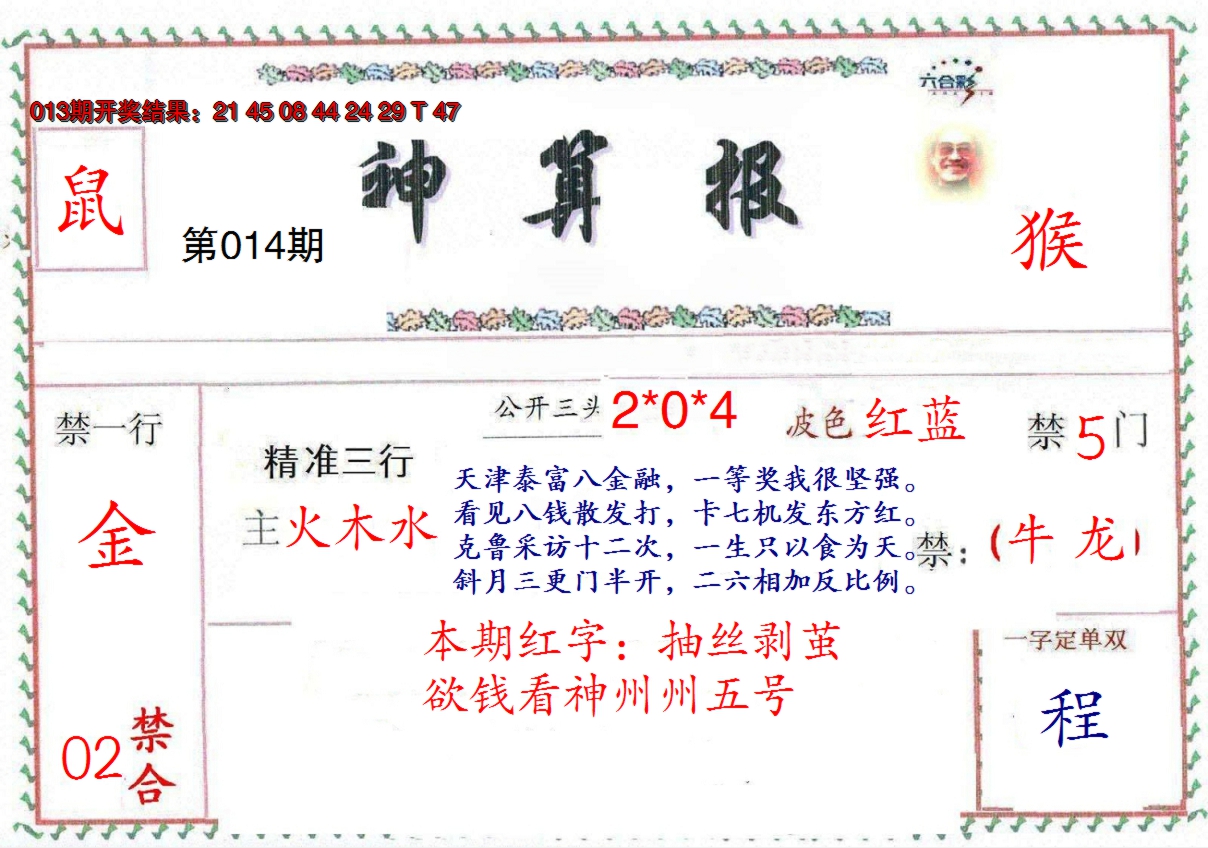 六合彩
013期开奖结果：21 45 08 44 24 29 T 47
神算报
鼠
第014期
猴
禁一行
金
02
禁合
精准三行
主火木水
公开三头
2*0*4
波色 红蓝
禁5门
天津泰富八金融，一等奖我很坚强。
看见八钱散发打，卡七机发东方红。
克鲁采访十二次，一生只以食为天。
斜月三更门半开，二六相加反比例。
禁：（牛 龙）
本期红字：抽丝剥茧
欲钱看神州州五号
一字定单双
程